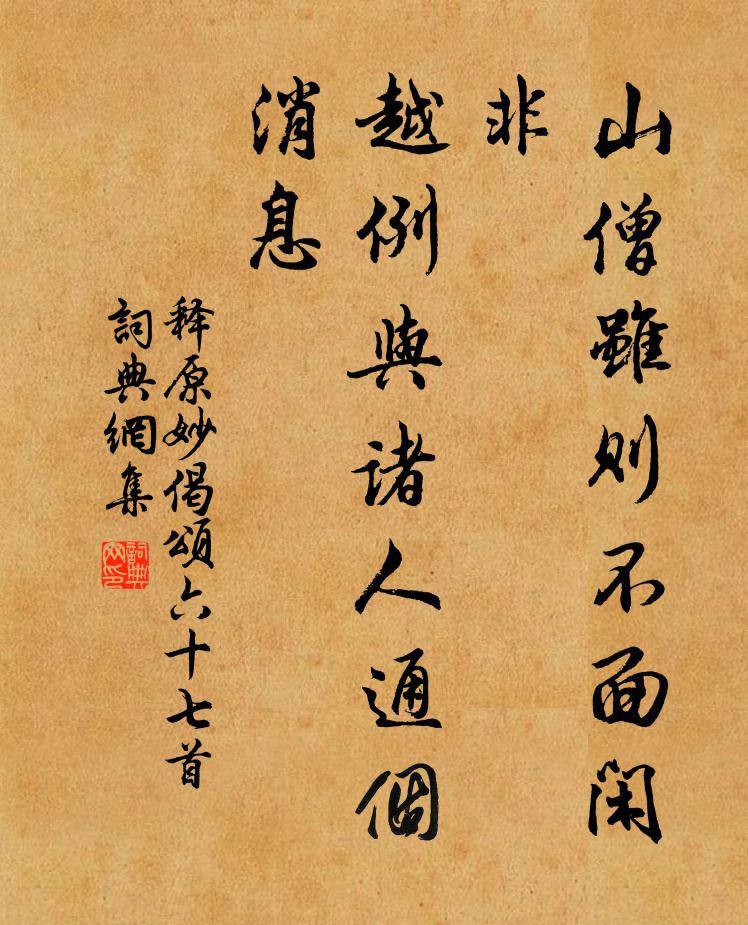 山僧雖則不面閑
非
越例與諸人通個
消息
释原妙偈頌六十七首
詞典網集
詞典網印